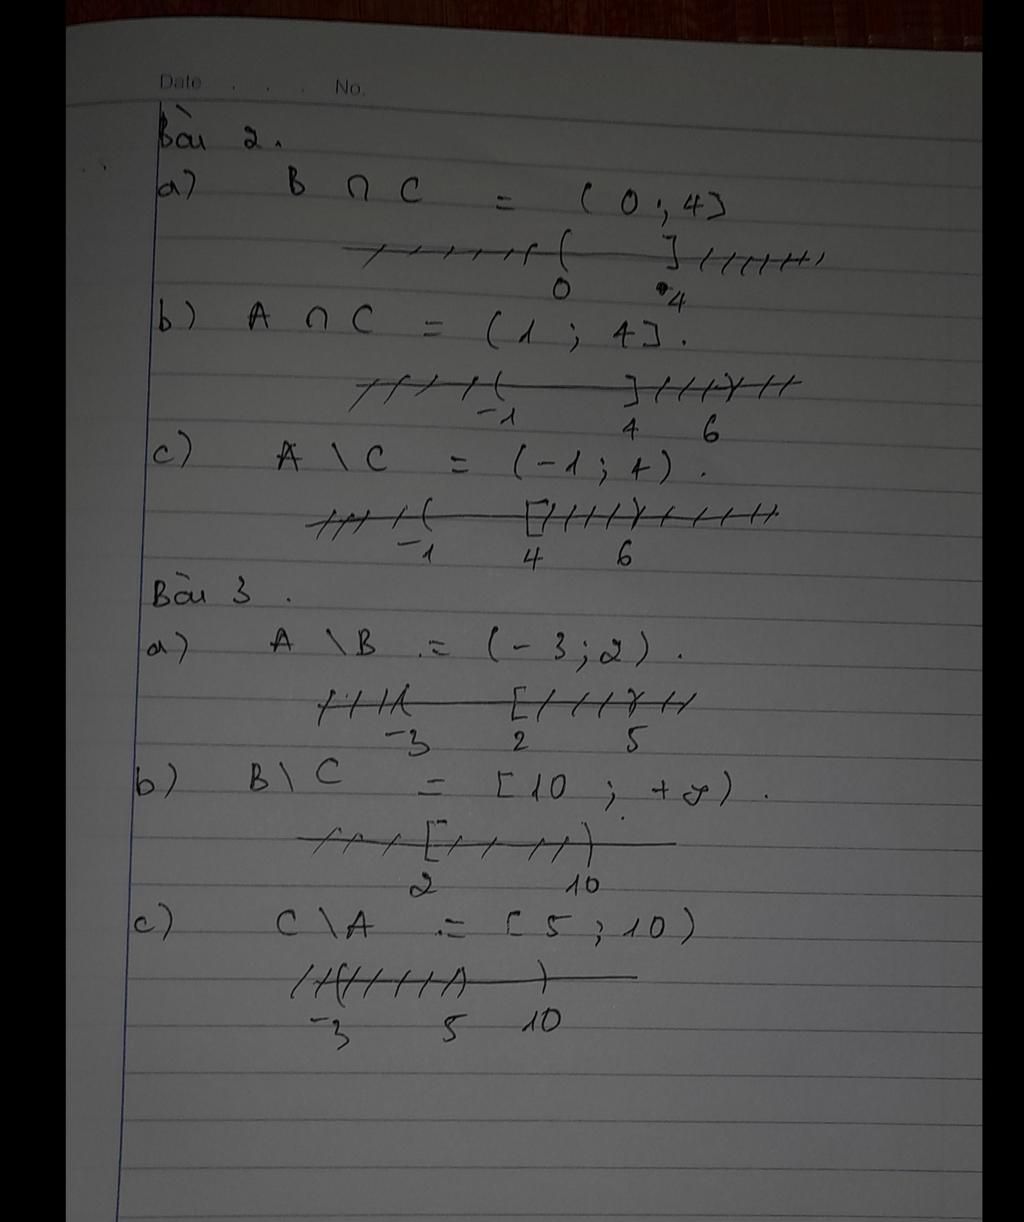 Date . . . No.
Bài 2.
a) B ∩ C = ( 0 ; 4 ]
0 4
b) A ∩ C = ( 1 ; 4 ] .
-1 4 6
c) A \ C = ( -1 ; 4 ) .
-1 4 6
Bài 3 .
a) A \ B = ( - 3 ; 2 ) .
-3 2 5
b) B \ C = [ 10 ; + ∞ ) .
2 10
c) C \ A = [ 5 ; 10 )
-3 5 10